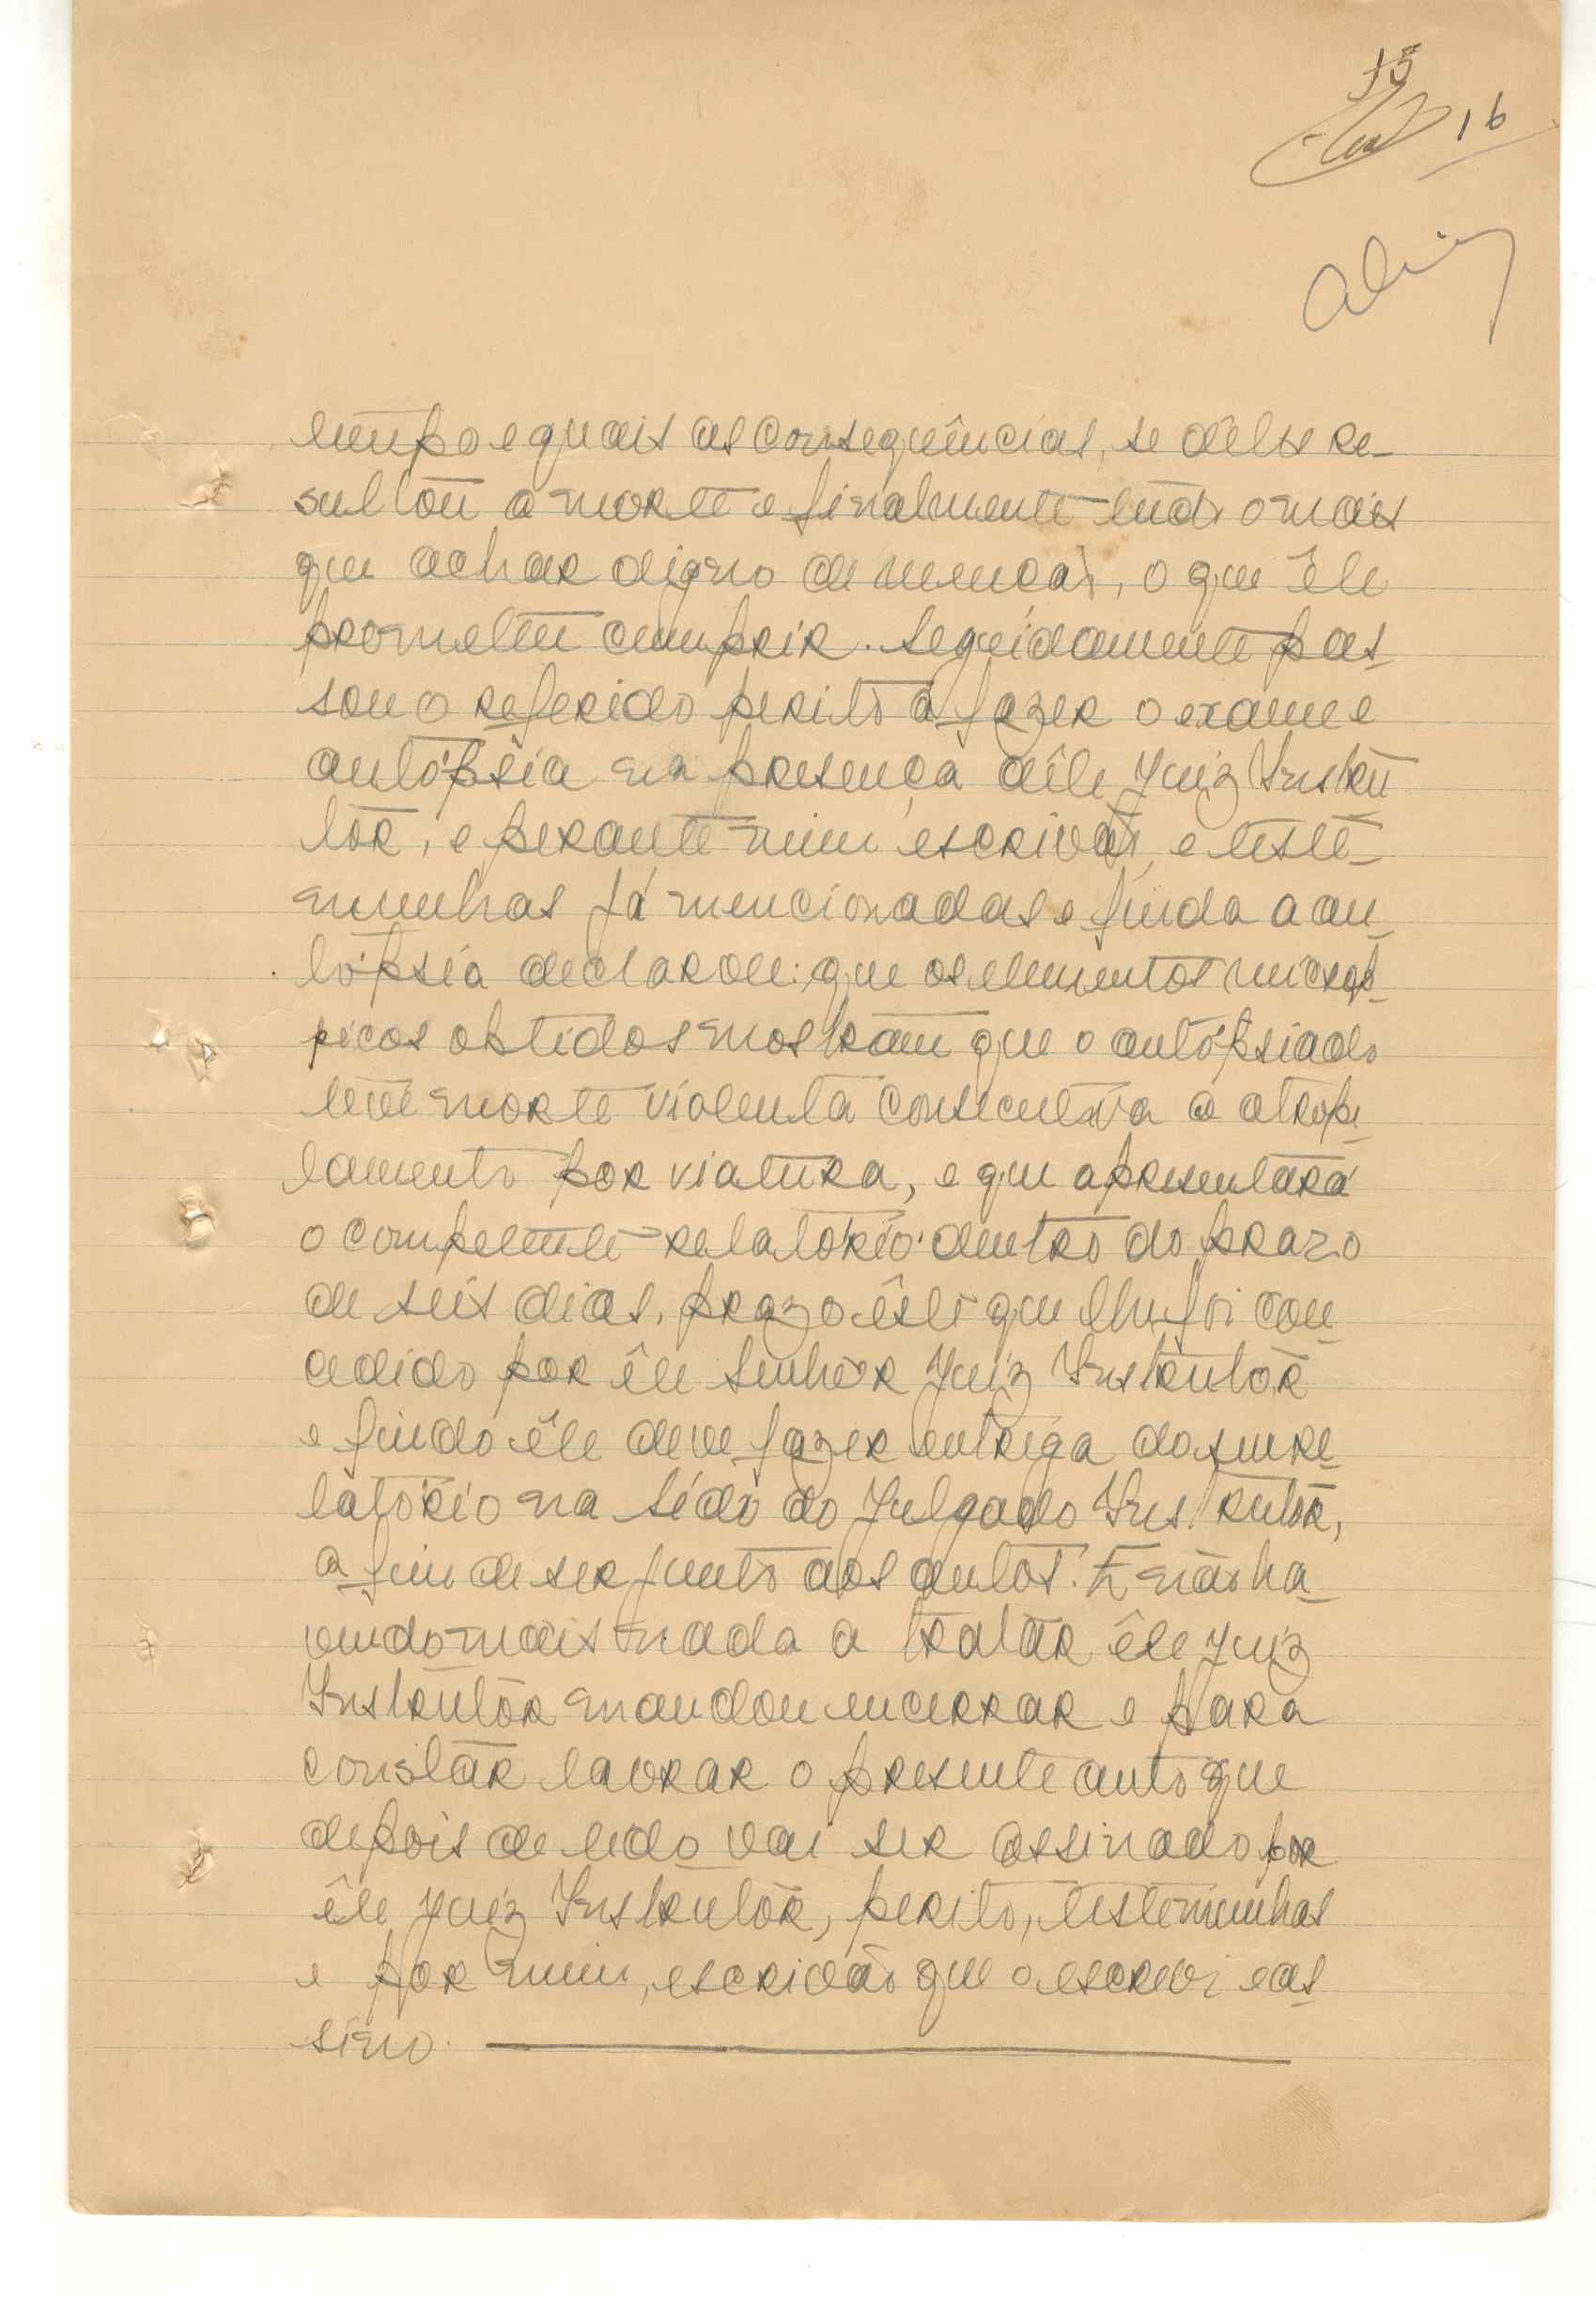 15
16
tempo e quais as consequências, se deles re-
sultou a morte e finalmente tudo o mais
que achar digno de menção, o que êle
prometeu cumprir. Seguidamente pas-
sou o referido perito a fazer o exame e
autópsia na presença dêle Juiz Instru
tôr, e perante mim escrivão, e teste-
munhas já mencionadas e finda a au-
tópsia declarou: que os elementos
picos obtidos mostram que o autópsiado
teve morte violenta consecutiva a atrope-
lamento por viatura, e que apresentará
o competente relatório dentro do prazo
de seis dias, prazo êste que lhe foi con-
cedido por êle Senhor Juiz Instrutôr
e findo êle deve fazer entrega do seu re-
latório na séde do Julgado Instrutôr,
a fim de ser junto aos autos. E não ha-
vendo mais nada a tratar êle Juiz
Instrutôr mandou encerrar e para
constar lavrar o presente auto que
depois de lido vai ser assinado por
êle Juiz Instrutôr, perito, testemunhas
e por mim, escrivão que o escrevi e as-
sino.